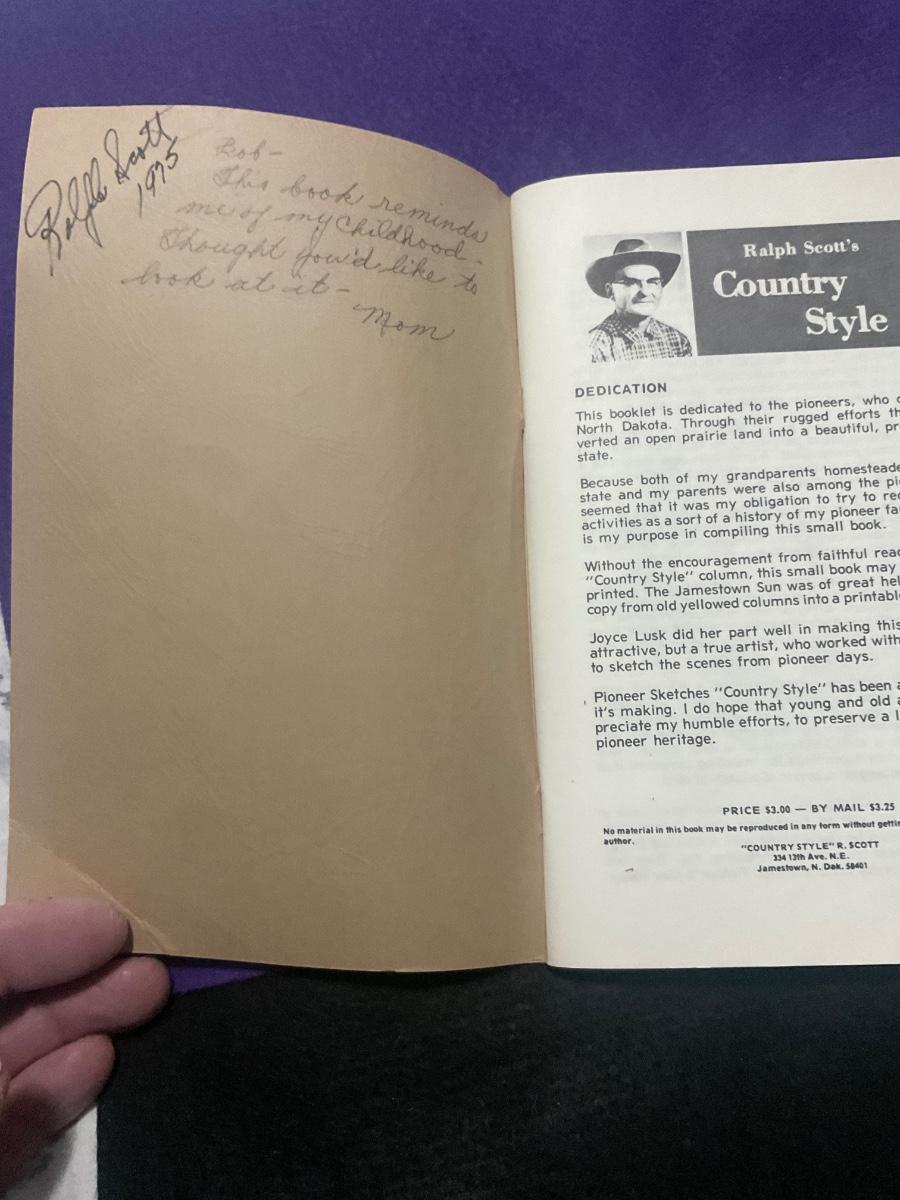 Ralph Scott
1975
Bob-
This book reminds
me of my Childhood-
Thought you'd like to
look at it-
Mom
Ralph Scott's
Country
Style
DEDICATION
This booklet is dedicated to the pioneers, who
North Dakota. Through their rugged efforts
verted an open prairie land into a beautiful,
state.
Because both of my grandparents
state and my parents were also among the
seemed that it was my obligation to try to
activities as a sort of a history of my pioneer
is my purpose in compiling this small book.
Without the encouragement from faithful
"Country Style" column, this small book may
printed. The Jamestown Sun was of great
copy from old yellowed columns into a
Joyce Lusk did her part well in making this
attractive, but a true artist, who worked with
to sketch the scenes from pioneer days.
Pioneer Sketches "Country Style" has been
it's making. I do hope that young and old
preciate my humble efforts, to preserve a
pioneer heritage.
PRICE $3.00 — BY MAIL $3.25
No material in this book may be reproduced in any form without
author.
"COUNTRY STYLE" R. SCOTT
334 13th Ave. N.E.
Jamestown, N. Dak. 58401